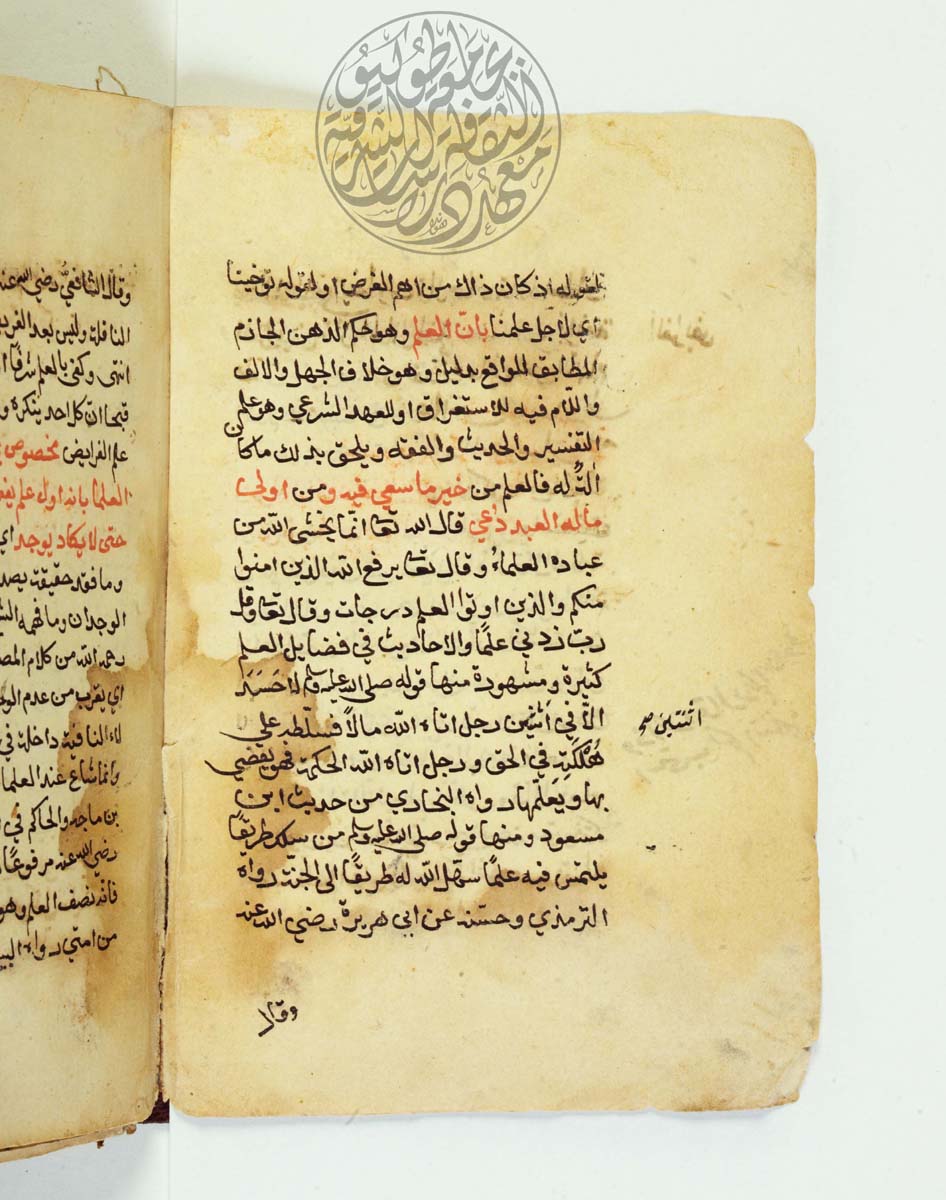 لقوله اذ كان ذاك من اهم الغرض او لقوله توخينا
اي لاجل علمنا بان العلم وهو حكم الذهن الجازم
المطابق للواقع بدليل وهو خلاف الجهل والالف
واللام فيه للاستغراق او للعهد الشرعي وهو علم
التفسير والحديث والفقه ويلحق بذلك ما كان
اٰلةً له فالعلم من خير ما سعي فيه ومن اولى
ماله العبد دُعي قال الله تعا انما يخشى الله من
عباده العلماءُ وقال تعا يرفع الله الذين امنوا
منكم والذين اوتوا العلم درجات وقال تعا وقل
رب زدني علمًا والاحاديث في فضايل العلم
كثيرة ومشهودة منها قوله صلى الله عليه وسلم لا حَسَدَ
الّا في اَثنين رجل اتاه الله مالاً فسلّطه على
اثنتين صح
هَلَكَتِه في الحق ورجل اتاه الله الحكمة فهو يقضي
بها ويَعلّمها رواه البخاري من حديث ابن
مسعود ومنها قوله صلى الله عليه وسلم من سلك طريقًا
يلتمس فيه علمًا سهّل الله له طريقًا الى الجنّة رواه
الترمذي وحسّنه عن ابي هريرة رضي الله عنه
وقال
وقال الشافعيُّ رضي الله عنه
النافلة وليس بعد الفر
انتهى وكفى بالعلم شرفًا
قبحا انّ كل احد ينكره و
علم الفرايض مخصوص
العلما بانه اول علم يف
حتى لا يكاد يوجد اي
وما فقد حقيقة يصد
الوجدان وما فهمه الش
رحمه الله من كلام المص
اي يقرب من عدم الو
لاء النافية داخلة في
وانما شاع عند العلما
بن ماجه والحاكم في
رضي الله عنه مرفوعًا
فانه نصف العلم وهو
من امتي رواه البي